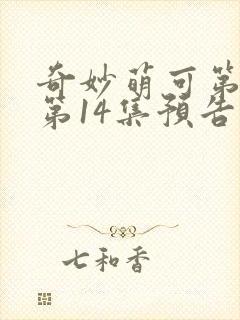 奇妙萌可第
第14集預告
七和香